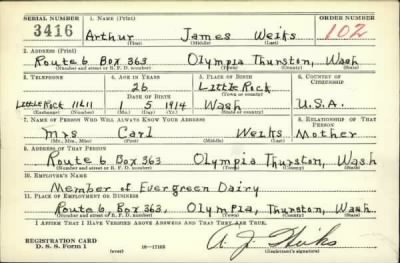 SERIAL NUMBER 1. NAME (Print) ORDER NUMBER
3416 Arthur James Weiks 102
(First) (Middle) (Last)
2. ADDRESS (Print)
Route 6 Box 363 Olympia Thurston, Wash
(Number and street or R. F. D. number) (Town) (County) (State)
3. TELEPHONE 4. AGE IN YEARS 5. PLACE OF BIRTH 6. COUNTRY OF CITIZENSHIP
26 Little Rock
DATE OF BIRTH (Town or county)
Little Rock 11611 1 5 1914 Wash U.S.A.
(Exchange) (Number) (Mo.) (Day) (Yr.) (State or country)
7. NAME OF PERSON WHO WILL ALWAYS KNOW YOUR ADDRESS 8. RELATIONSHIP OF THAT PERSON
Mrs Carl Weiks Mother
(Mr., Mrs., Miss) (First) (Middle) (Last)
9. ADDRESS OF THAT PERSON
Route 6. Box 363 Olympia Thurston, Wash
(Number and street or R. F. D. number) (Town) (County) (State)
10. EMPLOYER'S NAME
Member of Evergreen Dairy
11. PLACE OF EMPLOYMENT OR BUSINESS
Route 6, Box 363, Olympia, Thurston, Wash.
(Number and street or R. F. D. number) (Town) (County) (State)
I AFFIRM THAT I HAVE VERIFIED ABOVE ANSWERS AND THAT THEY ARE TRUE.
REGISTRATION CARD
D. S. S. Form 1 (over) 16—17105 A. J. Weiks
(Registrant's signature)